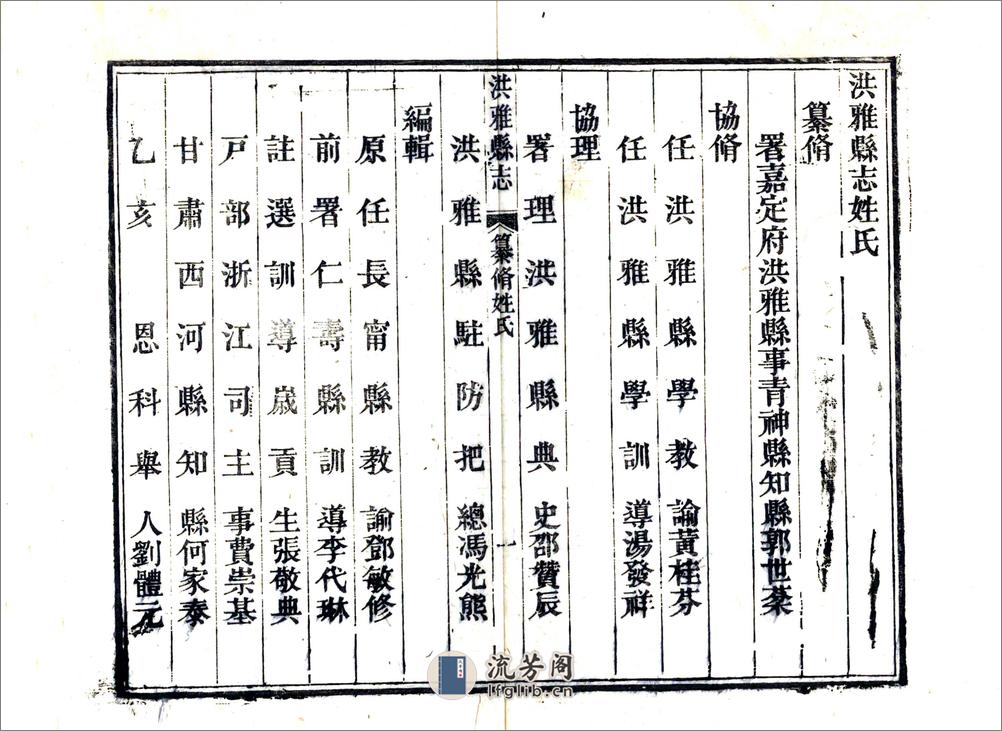 洪雅縣志姓氏
纂脩
署嘉定府洪雅縣事青神縣知縣郭世棻
協脩
任洪雅縣學教諭黃桂芬
任洪雅縣學訓導湯發祥
協理
署理洪雅縣典史邵贊辰
洪雅縣志
纂脩姓氏
一
洪雅縣駐防把總馮光熊
編輯
原任長甯縣教諭鄧敏修
前署仁壽縣訓導李代琳
註選訓導歲貢生張敬典
戸部浙江司主事費崇基
甘肅西河縣知縣何家泰
乙亥恩科舉人劉體元
流芳阁
lfglib.cn